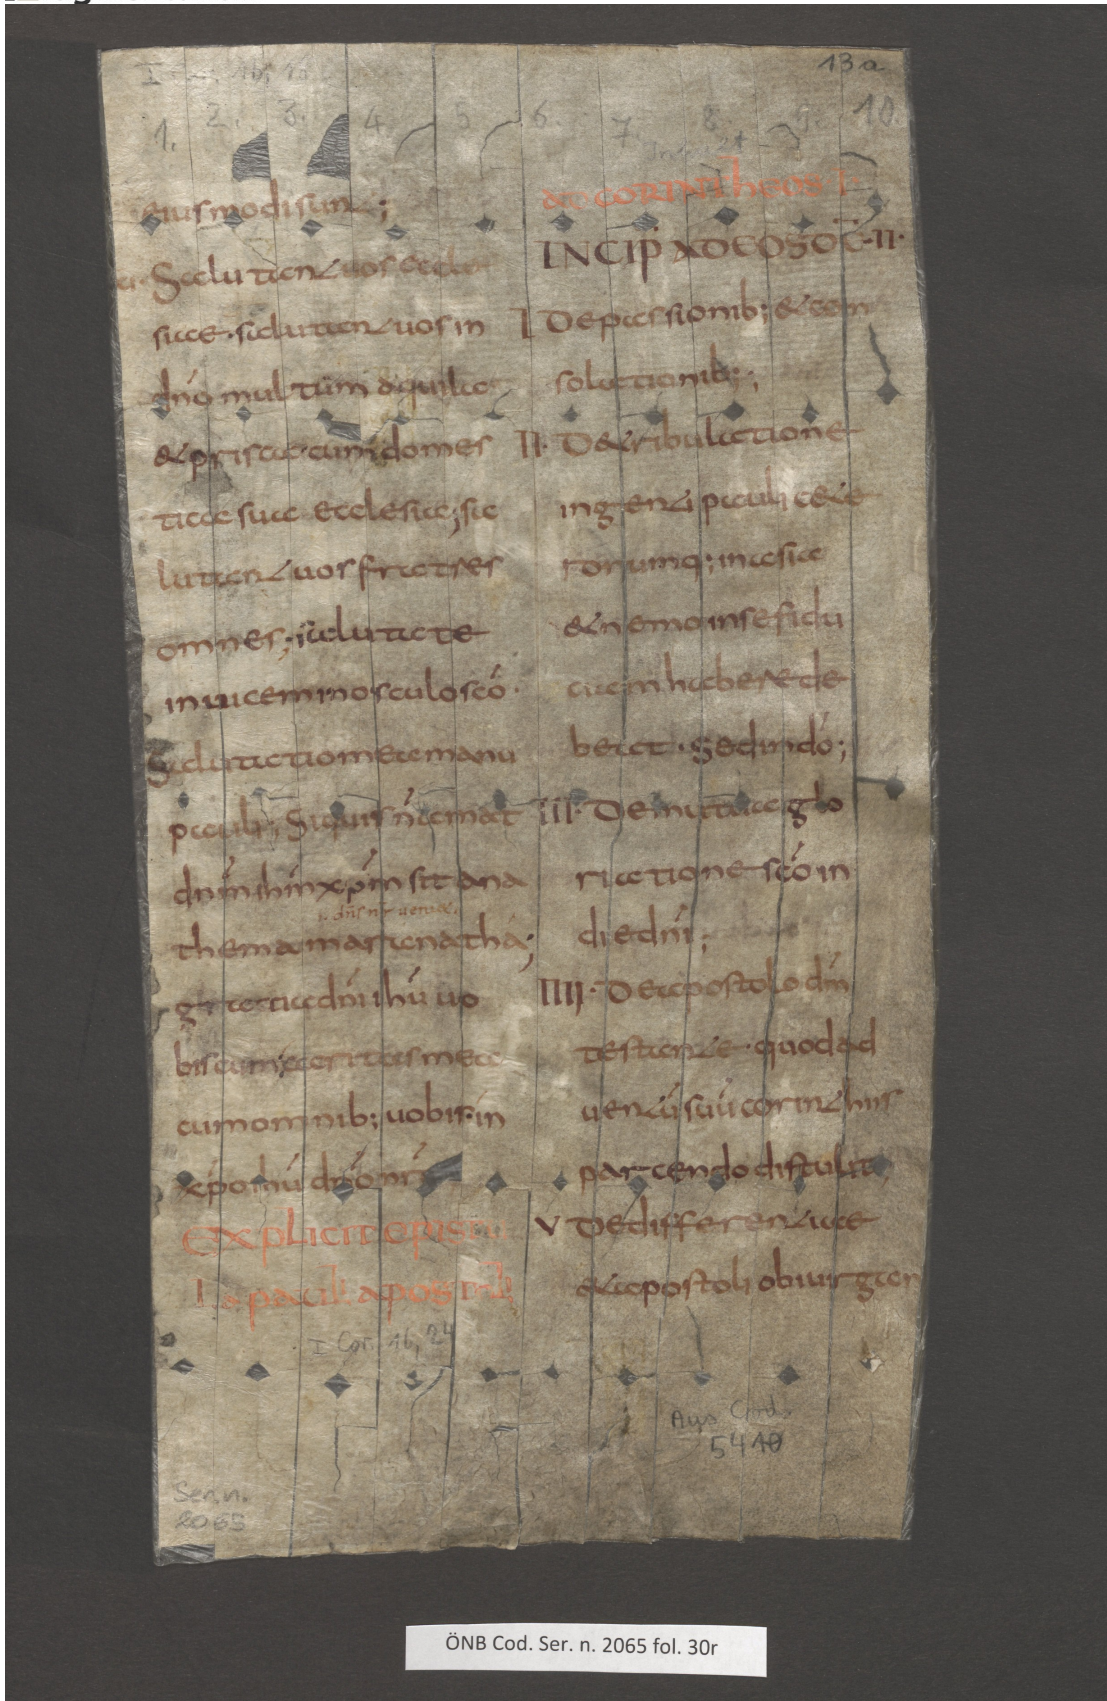 13a
1. 2. 3. 4. 5 6. 7. 8. 9. 10.
eiusmodi sunt;
Salutant uos eccle
siae · salutant uos in
dn̄o multum aquila
& prisca cum domes
tica sua ecclesia; sa
lutant uos fratres
omnes; salutate
inuicem in osculo sc̄o ·
Salutatio mea manu
pauli; Siquis n̄ amat
dn̄m ihm̄ xp̄m sit ana
.i. dn̄s nr uenit
thema maranatha;
gratia dn̄i ihū uo
biscum; caritas mea
cum omnib; uobis · in
xp̄o ihū dn̄o nr̄o
EXPLICIT EPIST
I a pauli apostoli
I Cor. 16, 24
Ser. n.
2065
AD CORINTHEOS · I ·
INCIP AD EOSD C̄ · II ·
I De passionib; & con
solationib;;
II · De tribulatione
ingenti pauli &
rorumq; in asia
& nemo in se fidu
ciam habere de
beat · Sed in dō;
III · De mutua glo
riatione sc̄o in
die dn̄i;
IIII · De apostolo dm̄
testante · quod ad
uentū suū corinthiis
parcendo distulit;
V De differentia
& apostoli ob iurgan
Aus Cod.
5410
ÖNB Cod. Ser. n. 2065 fol. 30r